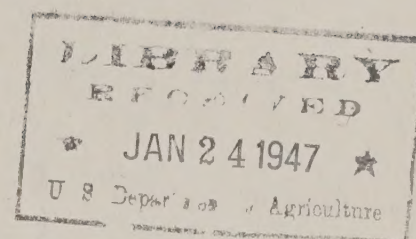 LIBRARY
RECEIVED
★ JAN 24 1947 ★
U S Department of Agriculture